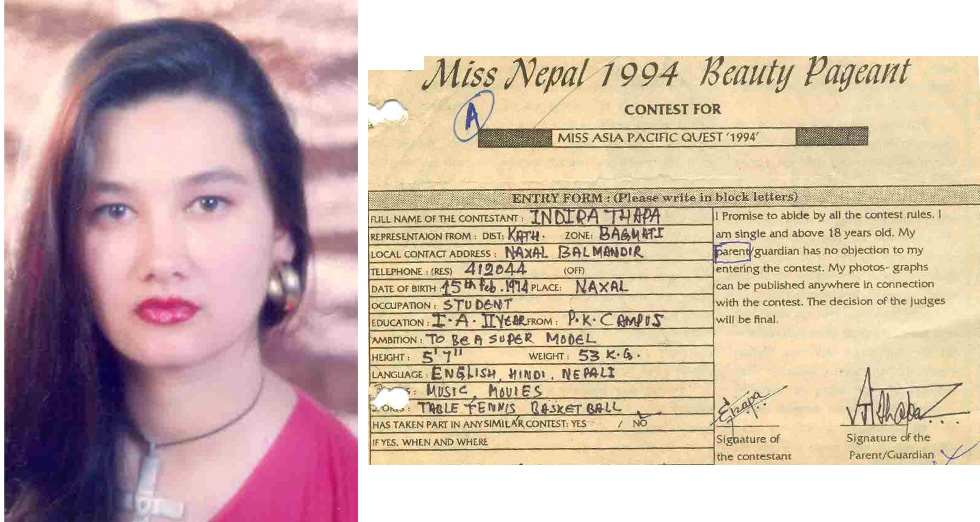 Miss Nepal 1994 Beauty Pageant
CONTEST FOR
A
MISS ASIA PACIFIC QUEST '1994'
ENTRY FORM : (Please write in block letters)
FULL NAME OF THE CONTESTANT : INDIRA THAPA
REPRESENTAION FROM : DIST: KATH. ZONE: BAGMATI
LOCAL CONTACT ADDRESS : NAXAL BALMANDIR
TELEPHONE : (RES) 412044 (OFF)
DATE OF BIRTH : 15th Feb. 1974 PLACE: NAXAL
OCCUPATION : STUDENT
EDUCATION : I.A. II YEAR FROM : P.K. CAMPUS
AMBITION : TO BE A SUPER MODEL
HEIGHT : 5'7" WEIGHT : 53 K.G.
LANGUAGE : ENGLISH, HINDI, NEPALI
MUSIC, MOVIES
TABLE TENNIS, BASKET BALL
HAS TAKEN PART IN ANY SIMILAR CONTEST: YES / NO
IF YES, WHEN AND WHERE
I Promise to abide by all the contest rules. I
am single and above 18 years old. My
parent/guardian has no objection to my
entering the contest. My photos- graphs
can be published anywhere in connection
with the contest. The decision of the judges
will be final.
Signature of
the contestant
Signature of the
Parent/Guardian